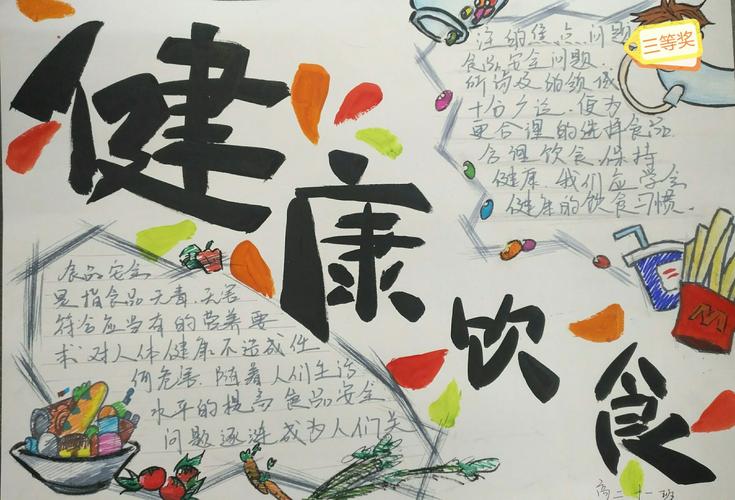 健康饮食
食品安全
是指食品无毒、无害
符合应当有的营养要
求对人体健康不造成任
何危害.随着人们生活
水平的提高食品安全
问题逐渐成为人们关
注的焦点问题
食品安全问题.
所涉及的领域
十分广泛.便为
更合理的选择食品
合理饮食.保持
健康.我们应学会
健康的饮食习惯.
三等奖
M
高二十一班